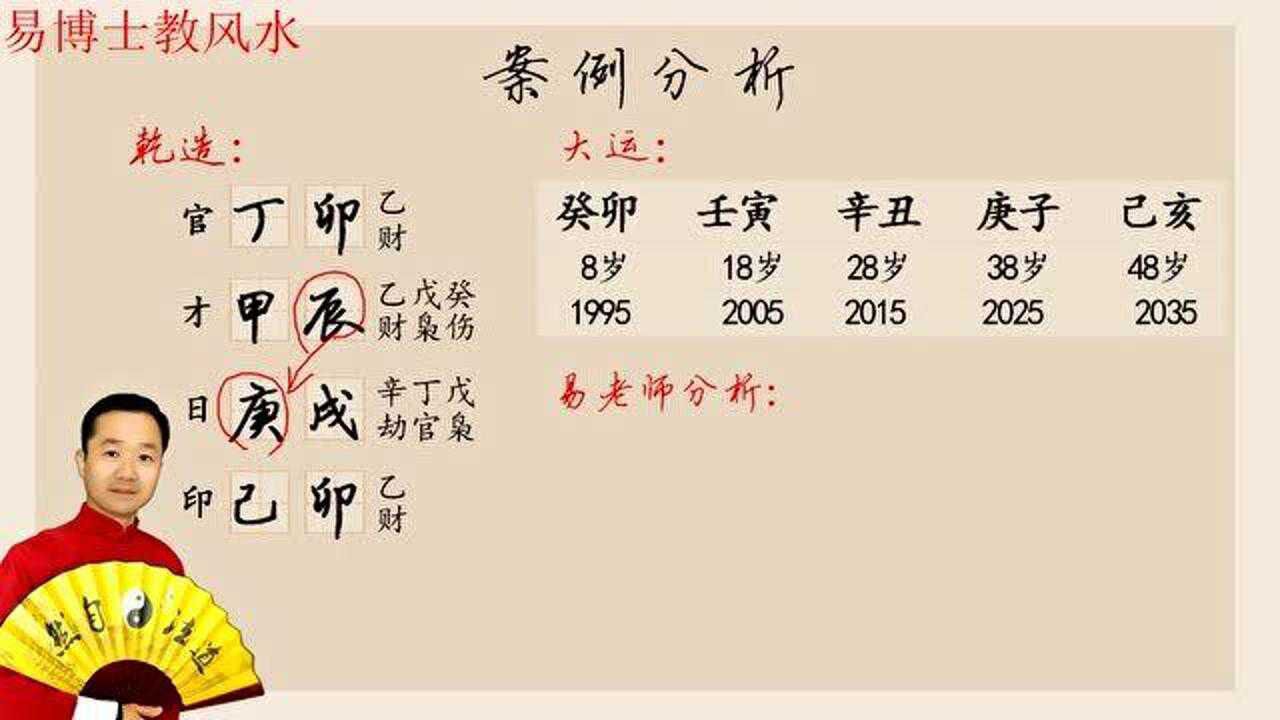 易博士教风水
案例分析
乾造：
官 丁 卯 乙
财
才 甲 辰 乙戊癸
财枭伤
日 庚 戌 辛丁戊
劫官枭
印 己 卯 乙
财
大运：
癸卯 壬寅 辛丑 庚子 己亥
8岁 18岁 28岁 38岁 48岁
1995 2005 2015 2025 2035
易老师分析：
然自法道